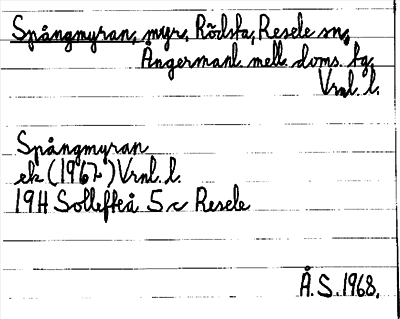 Spångmyran, myr, Rödsta, Resele sn,
Ångermanl. mell. doms. fg,
Vrnl. l.
Spångmyran
ek (1967) Vrnl. l.
19H Sollefteå 5 c Resele
Å. S. 1968.